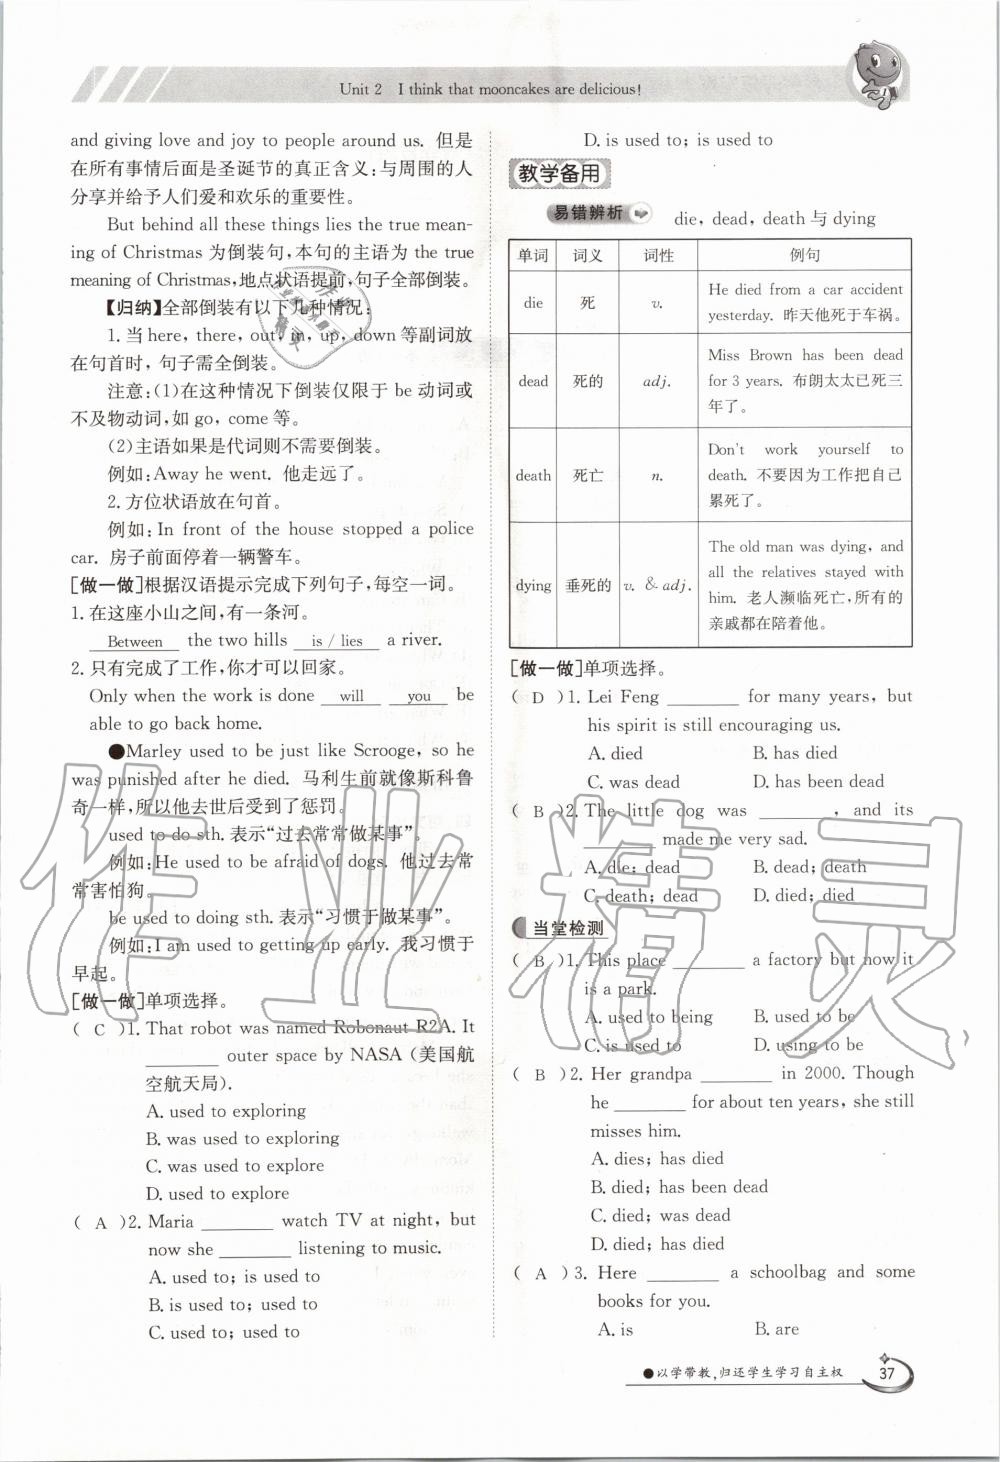 Unit 2 I think that mooncakes are delicious!
and giving love and joy to people around us. 但是
在所有事情后面是圣诞节的真正含义:与周围的人
分享并给予人们爱和欢乐的重要性。
But behind all these things lies the true mean-
ing of Christmas 为倒装句,本句的主语为 the true
meaning of Christmas,地点状语提前,句子全部倒装。
【归纳】全部倒装有以下几种情况:
1. 当 here, there, out, in, up, down 等副词放
在句首时,句子需全倒装。
注意:(1)在这种情况下倒装仅限于 be 动词或
不及物动词,如 go, come 等。
(2)主语如果是代词则不需要倒装。
例如:Away he went. 他走远了。
2. 方位状语放在句首。
例如:In front of the house stopped a police
car. 房子前面停着一辆警车。
[做一做]根据汉语提示完成下列句子,每空一词。
1. 在这座小山之间,有一条河。
Between the two hills is / lies a river.
2. 只有完成了工作,你才可以回家。
Only when the work is done will you be
able to go back home.
●Marley used to be just like Scrooge, so he
was punished after he died. 马利生前就像斯科鲁
奇一样,所以他去世后受到了惩罚。
used to do sth. 表示“过去常常做某事”。
例如:He used to be afraid of dogs. 他过去常
常害怕狗。
be used to doing sth. 表示“习惯于做某事”。
例如:I am used to getting up early. 我习惯于
早起。
[做一做]单项选择。
( C )1. That robot was named Robonaut R2A. It
________ outer space by NASA (美国航
空航天局).
A. used to exploring
B. was used to exploring
C. was used to explore
D. used to explore
( A )2. Maria ________ watch TV at night, but
now she ________ listening to music.
A. used to; is used to
B. is used to; used to
C. used to; used to
D. is used to; is used to
教学备用
易错辨析 die, dead, death 与 dying
单词 词义 词性 例句
die 死 v. He died from a car accident
yesterday. 昨天他死于车祸。
dead 死的 adj. Miss Brown has been dead
for 3 years. 布朗太太已死三
年了。
death 死亡 n. Don't work yourself to
death. 不要因为工作把自己
累死了。
dying 垂死的 v. & adj. The old man was dying, and
all the relatives stayed with
him. 老人濒临死亡,所有的
亲戚都在陪着他。
[做一做]单项选择。
( D )1. Lei Feng ________ for many years, but
his spirit is still encouraging us.
A. died B. has died
C. was dead D. has been dead
( B )2. The little dog was ________, and its
________ made me very sad.
A. die; dead B. dead; death
C. death; dead D. died; died
当堂检测
( B )1. This place ________ a factory but now it
is a park.
A. used to being B. used to be
C. is used to D. using to be
( B )2. Her grandpa ________ in 2000. Though
he ________ for about ten years, she still
misses him.
A. dies; has died
B. died; has been dead
C. died; was dead
D. died; has died
( A )3. Here ________ a schoolbag and some
books for you.
A. is B. are
●以学带教,归还学生学习自主权
37
作业精灵